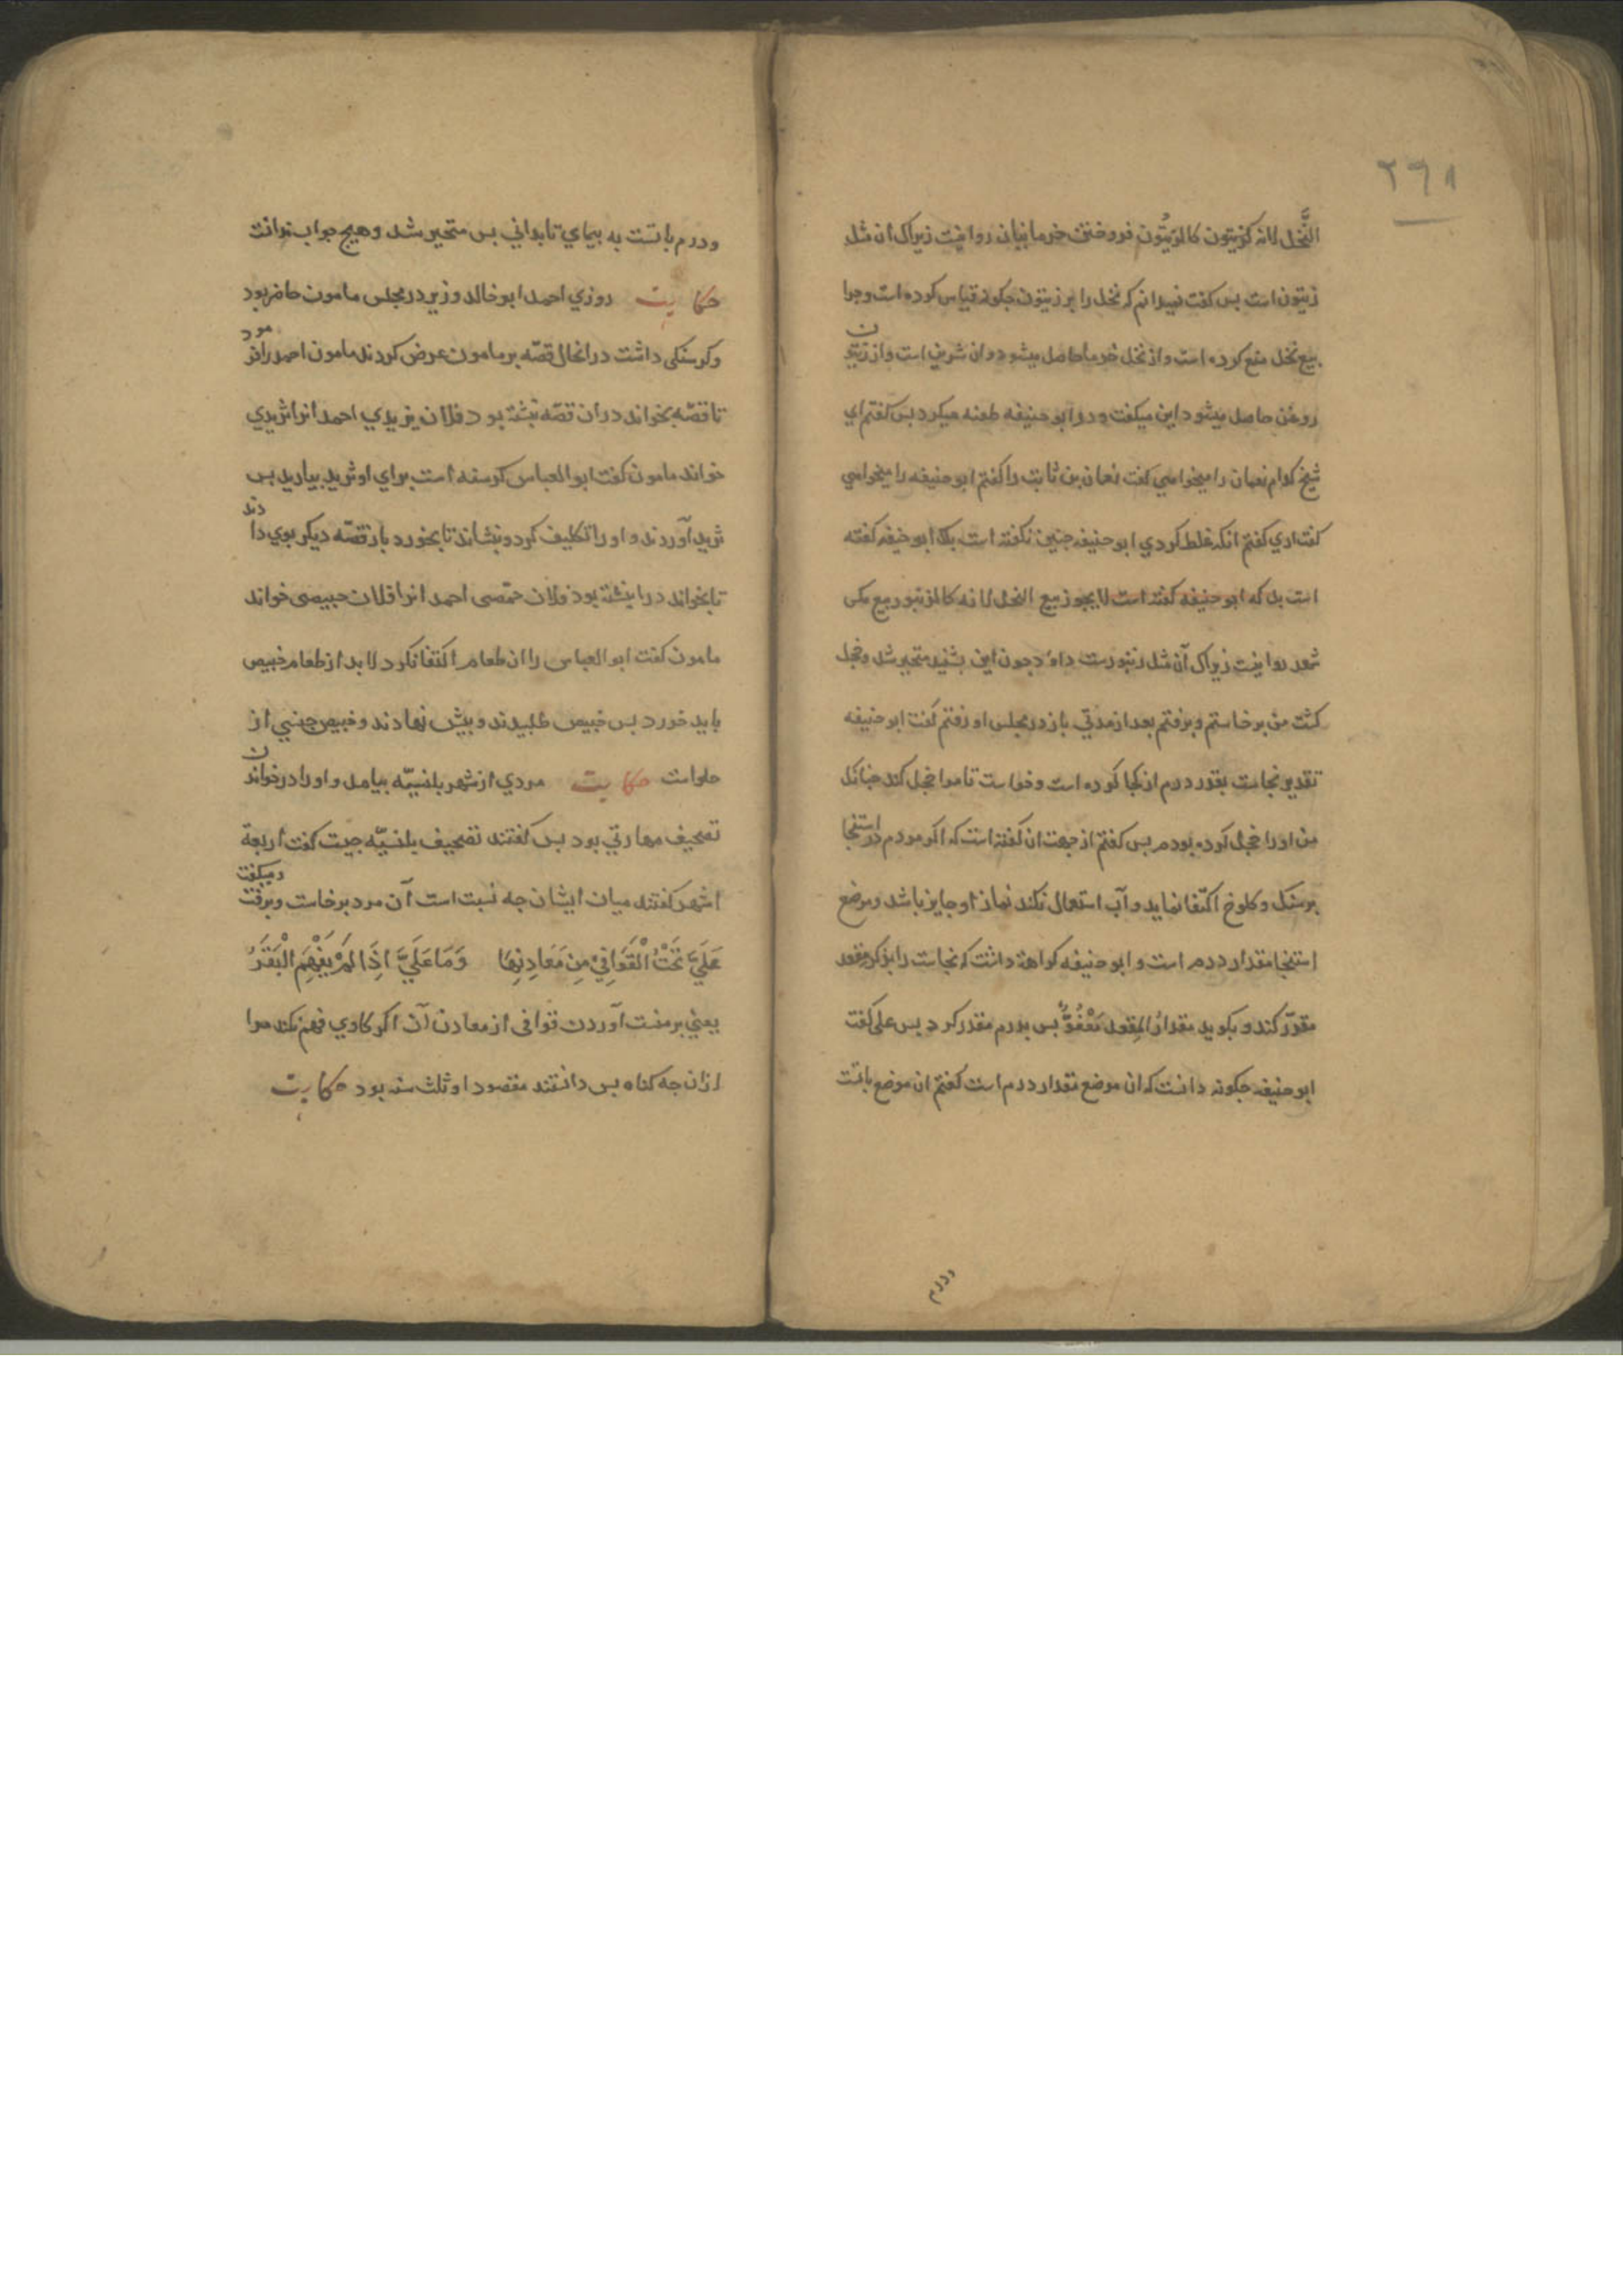 ۲۹۸
النَّخل لانه كزيتون كالزيتُون فروختن خرما بنان روا نيست زيراك ان مثل
زيتون است بس كفت نميدانم كه نخل را بر زيتون جكونه قياس كرده است وجرا
بيع نخل منع كرده است واز نخل خرما حاصل ميشود وان شريف است واز زيتون
روغن حاصل ميشود اين ميكفت ودر ابو حنيفه طعنه ميكرد بس كفتم اي
شيخ كدام نعمان را ميخواهي كفت نعمان بن ثابت را كفتم ابو حنيفه را ميخواهي
كفت اري كفتم انكه غلط كردي ابو حنيفه جنين نكفته است بلك ابو حنيفه كفته
است بل كه ابو حنيفه كفته است لا يجوز بيع النحل لانه كالزنبور بيع مكس
شهد روا نيست زيراك آن مثل زنبورست داود جون اين بشنيد متحير شد وخجل
كشت من برخاستم وبرفتم بعد از مدتي باز در مجلس او رفتم كفت ابو حنيفه
تقدير نجاست بقدر درم از كجا كرده است وخواست تا مرا خجل كند جنانك
من او را خجل كرده بودم بس كفتم از جهت ان كفته است كه اكر مردم در استنجا
بر سنك وكلوخ اكتفا نمايد وآب استعمال نكند نماز او جايز باشد وموضع
استنجا مقدار درم است و ابو حنيفه كراهة داشت كه نجاست را بذكر مقعد
مقدّر كند و بكويد مقدارُ المِقعد مَعْفُوٌّ بس بدرم مقدر كرد بس علي كفت
ابو حنيفه جكونه دانست كه ان موضع مقدار درم است كفتم ان موضع بانست
ودرم
ودرم بانست به بيماي تا بداني بس متحير شد وهيج جواب ندانت
حكايت روزي احمد ابو خالد وزير در مجلس مامون حاضر بود
وكرسنكي داشت در انحال قصّه بر مامون عرض كردند مامون احمد را فرمود
تا قصّه بخواند در ان قصّه نبشته بود فلان يزيدي احمد انرا ثريدي
خواند مامون كفت ابو العباس كرسنه است براي او ثريد بياريد بس
ثريد آوردند و او را تكليف كرد وبنشاند تا بخورد باز قصّه ديكر بوي دادند
تا بخواند در ان نبشته بود فلان حمّصي احمد انرا فلان خبيصي خواند
مامون كفت ابو العباس را ان طعام اكتفا نكرد لابد از طعام خبيص
بايد خورد بس خبيص طلبيدند وبيش نهادند وخبيص جنسي از
حلواست حكايت مردي از شهر بلنسيّه بيامد و او را در خواندن
تصحيف مهارتي بود بس كفتند تصحيف بلنسيّه جيست كفت اربعة
اشهر كفتند ميان ايشان جه نسبت است آن مرد برخاست وبرفت وميكفت
عَلَيَّ نَحْتُ الْقَوَافِيْ مِنْ مَعَادِنِهَا وَمَا عَلَيَّ اِذَا لَمْ يَفْهَمِ الْبَقَرُ
يعني بر منست آوردن قوافي از معادن آن اكر كاوي فهم نكند مرا
ازان جه كناه بس دانستند مقصود او ثلث سنه بود حكايت